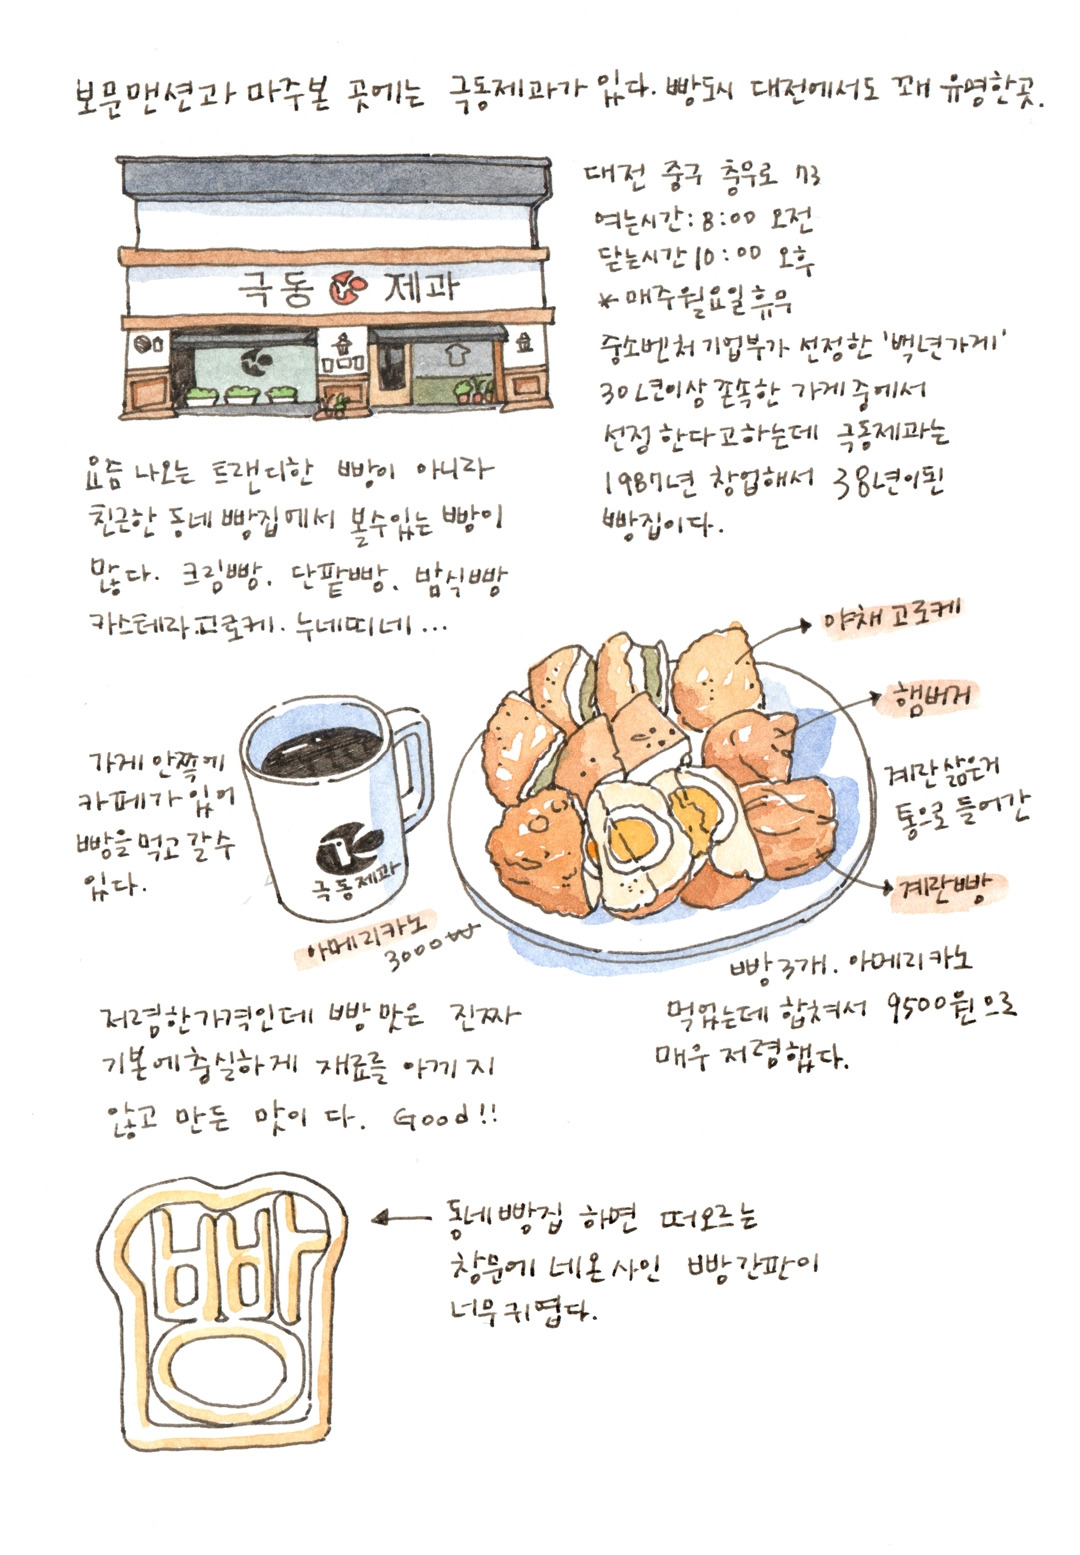 보문맨션과 마주본 곳에는 극동제과가 있다. 빵도시 대전에서도 꽤 유명한곳.
극동 제과
대전 중구 충무로 73
여는시간: 8:00 오전
닫는시간 10:00 오후
* 매주월요일휴무
중소벤처기업부가 선정한 '백년가게'
30년이상 존속한 가게 중에서
선정 한다고하는데 극동제과는
1987년 창업해서 38년이된
빵집이다.
요즘 나오는 트랜디한 빵이 아니라
친근한 동네 빵집에서 볼수있는 빵이
많다. 크림빵. 단팥빵. 밤식빵
카스테라 고로케. 누네띠네...
야채 고로케
햄버거
계란 삶은거
통으로 들어간
계란빵
가게 안쪽에
카페가 있어
빵을 먹고 갈 수
있다.
극동제과
아메리카노
3000₩
빵 3개. 아메리카노
먹었는데 합쳐서 9500원으로
매우 저렴했다.
저렴한가격인데 빵 맛은 진짜
기본에충실하게 재료를 아끼지
않고 만든 맛이다. Good!!
빵
동네빵집 하면 떠오르는
창문에 네온사인 빵간판이
너무귀엽다.